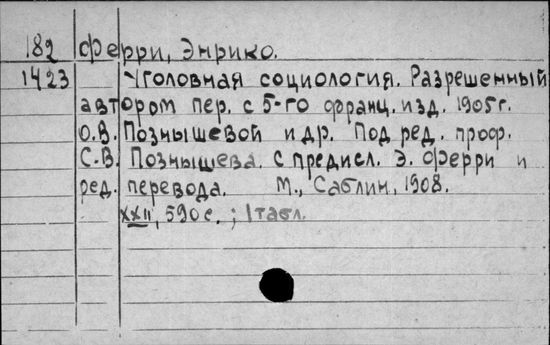 182 Ферри, Энрико.
1423 Уголовная социология. Разрешенный
автором пер. с 5-го франц. изд. 1905г.
О.В. Познышевой и др. Под ред. проф.
С.В. Познышева. С предисл. Э. Ферри и
ред. перевода. М., Саблин, 1908.
XXII, 590 с. ; 1 табл.